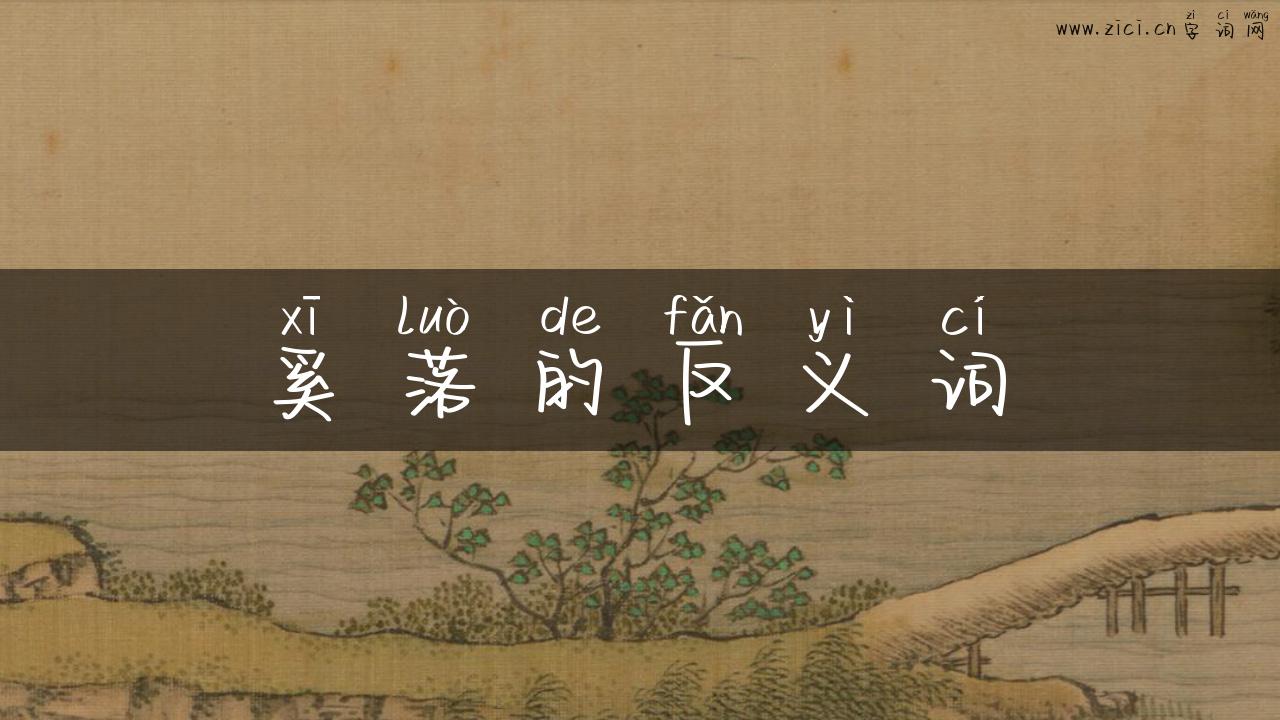 zì cí wǎng
www.zici.cn 字词网
xī luò de fǎn yì cí
奚落的反义词